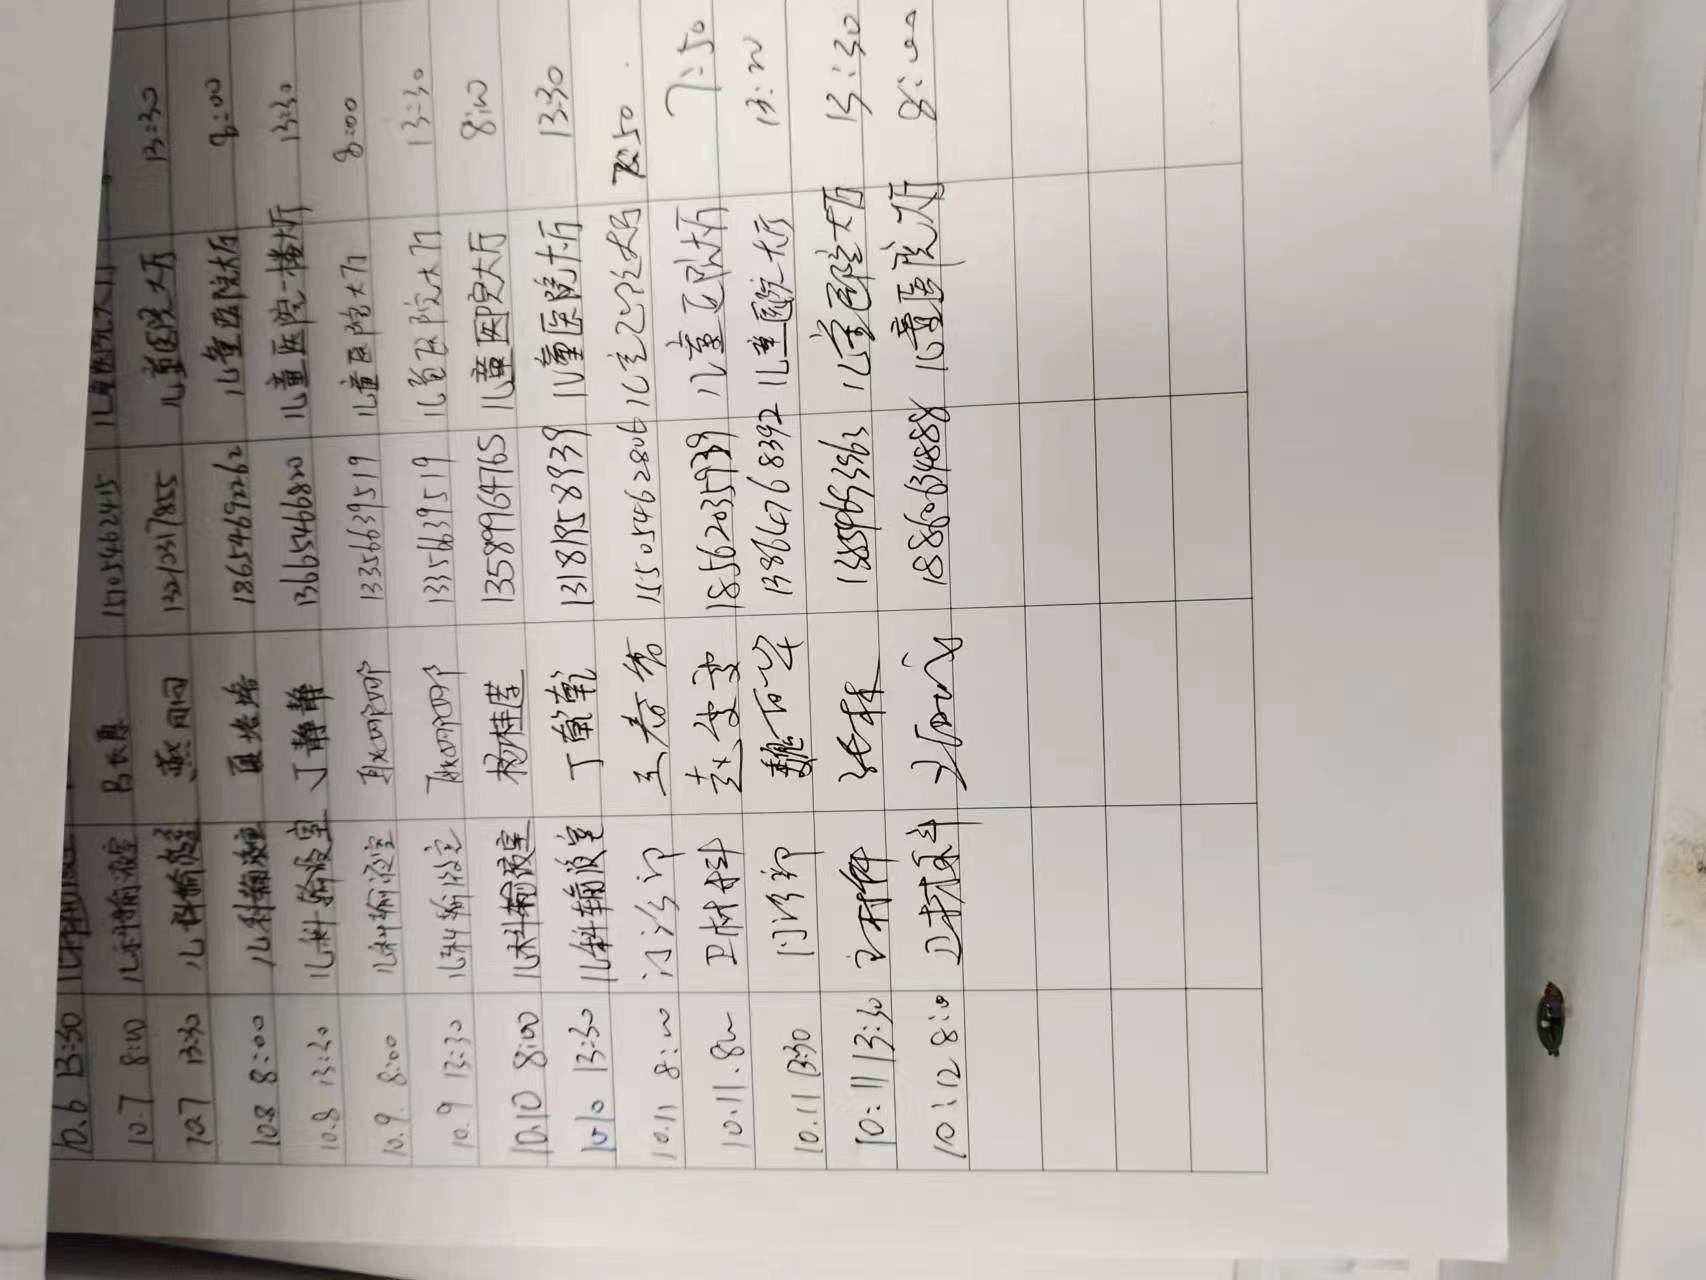 10.6 13:30
10.7 8:00 儿科输液室 吕长厚 15105462415 儿童医院大厅 13:30
10.7 13:30 儿科输液室 燕同同 儿童医院大厅 8:00
10.8 8:00 儿科输液室 夏培培 18654692262 儿童医院大厅 13:30
10.8 13:30 儿科输液室 丁静静 13665466820 儿童医院一楼大厅 8:00
10.9. 8:00 儿科输液室 13356639519 儿童医院大厅 13:30
10.9 13:30 儿科输液室 13356639519 儿童医院大厅 8:00
10.10 8:00 儿科输液室 杨桂芹 13589964765 儿童医院大厅 13:30
10.10 13:30 儿科输液室 丁莺莺 13181958939 儿童医院大厅 7:50
10.11 8:00 门诊部 王春秀 15505462806 儿童医院大厅 7:50
10.11.8:00 卫材科 赵雯雯 18562035939 儿童医院大厅 13:20
10.11 13:30 门诊部 13864768392 儿童医院大厅 13:30
10:11 13:30 卫材科 儿童医院大厅 8:00
10:12 8:00 卫材科 18860634888 儿童医院大厅